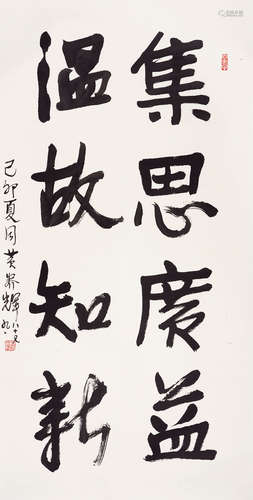 集思广益
温故知新
己卯夏月黄苗辉八十又九